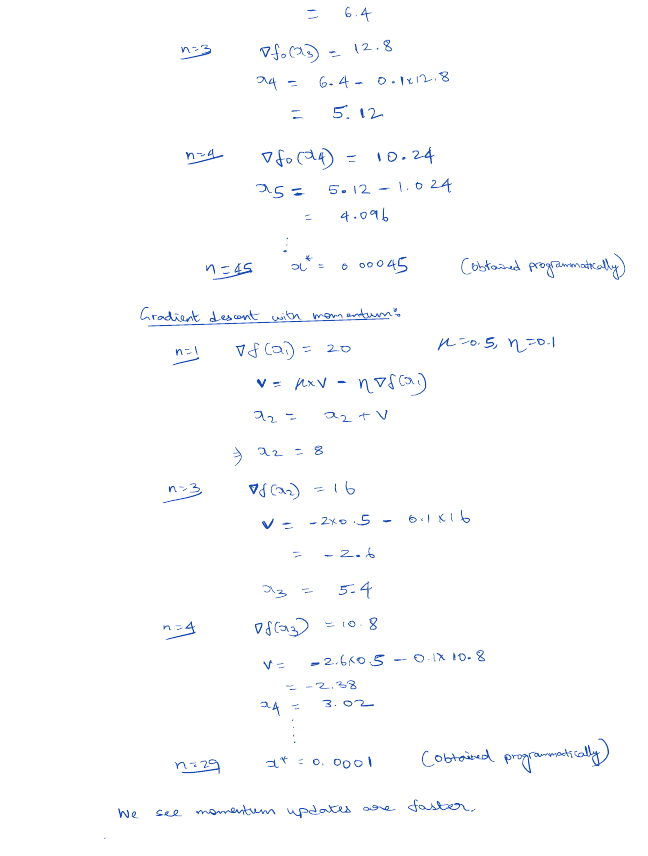 = 6.4
n=3 ∇f₀(x₃) = 12.8
x₄ = 6.4 - 0.1x12.8
= 5.12
n=4 ∇f₀(x₄) = 10.24
x₅ = 5.12 - 1.024
= 4.096
⋮
n=45 x* = 0.00045 (obtained programmatically)
Gradient descent with momentum:
n=1 ∇f(x₁) = 20 μ=0.5, η=0.1
v = μxv - η∇f(x₁)
x₂ = x₂ + v
⇒ x₂ = 8
n=3 ∇f(x₂) = 16
v = -2x0.5 - 0.1x16
= -2.6
x₃ = 5.4
n=4 ∇f(x₃) = 10.8
v = -2.6x0.5 - 0.1x10.8
= -2.38
x₄ = 3.02
⋮
n=29 x* = 0.0001 (obtained programmatically)
We see momentum updates are faster.